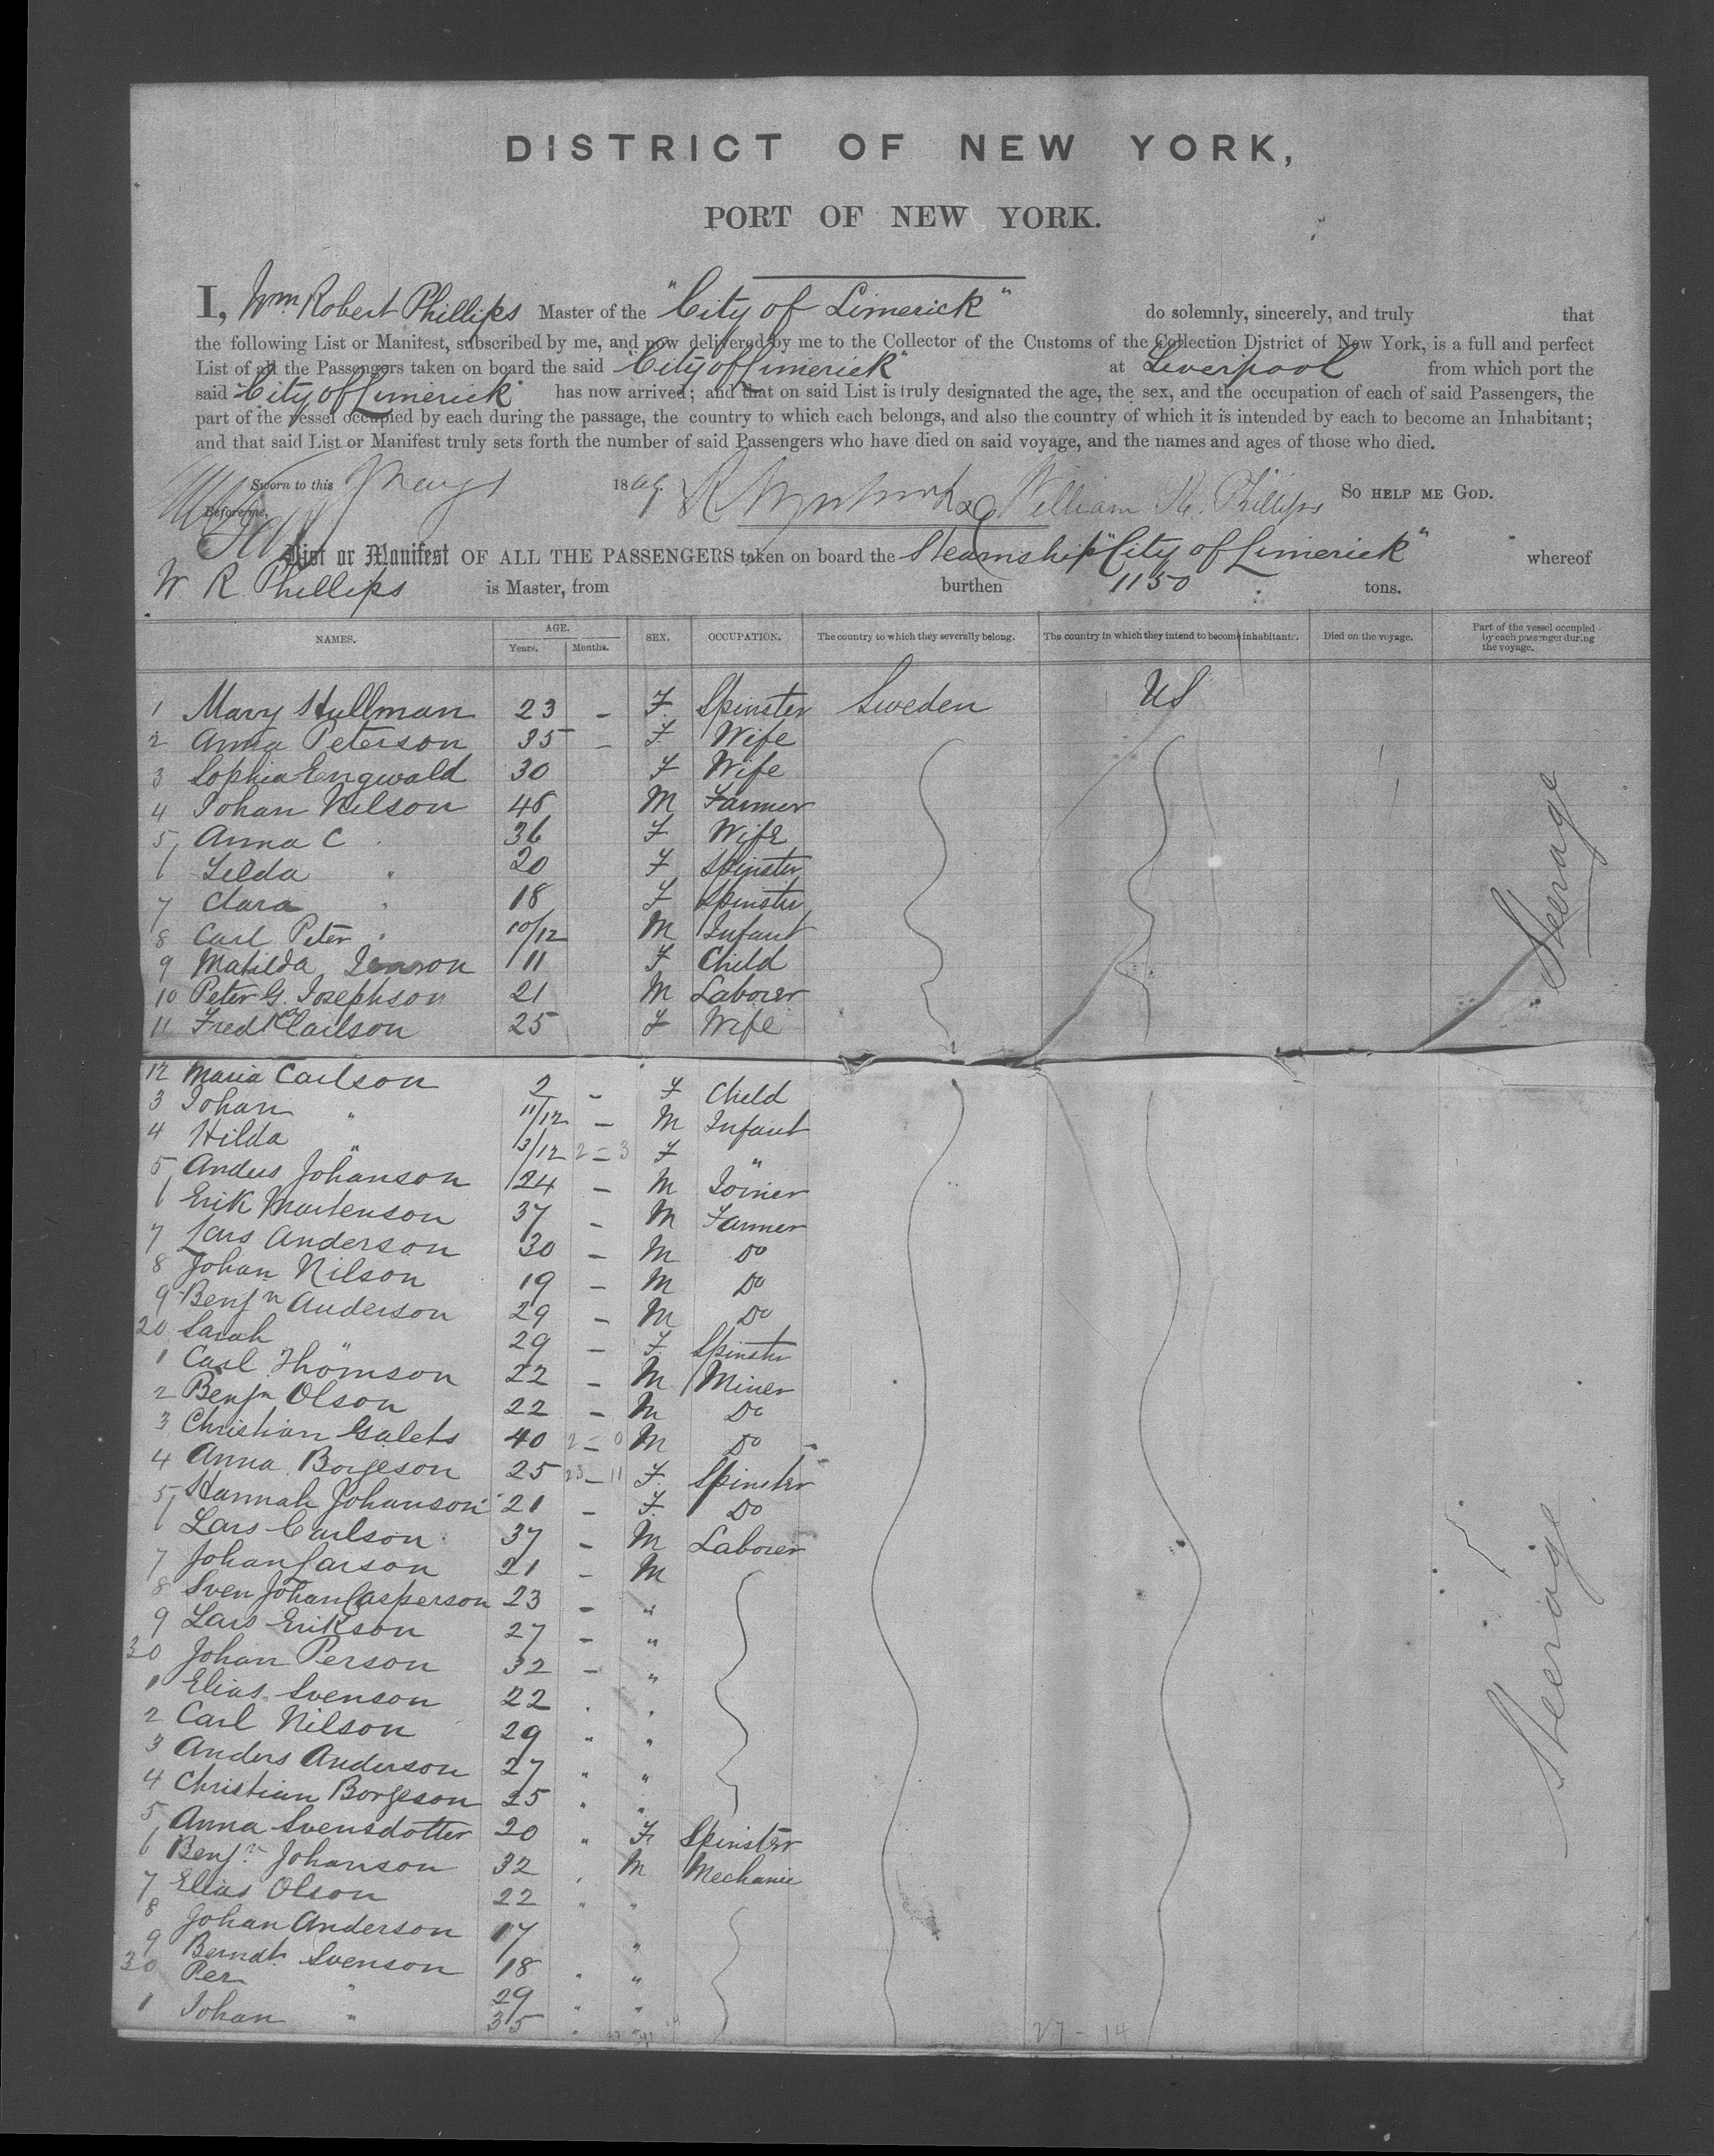 DISTRICT OF NEW YORK,
PORT OF NEW YORK.
I, Wm. Robert Phillips Master of the "City of Limerick" do solemnly, sincerely, and truly that
the following List or Manifest, subscribed by me, and now delivered by me to the Collector of the Customs of the Collection District of New York, is a full and perfect
List of all the Passengers taken on board the said "City of Limerick" at Liverpool from which port the
said "City of Limerick" has now arrived; and that on said List is truly designated the age, the sex, and the occupation of each of said Passengers, the
part of the vessel occupied by each during the passage, the country to which each belongs, and also the country of which it is intended by each to become an Inhabitant;
and that said List or Manifest truly sets forth the number of said Passengers who have died on said voyage, and the names and ages of those who died.
Sworn to this May 1869 William R. Phillips SO HELP ME GOD.
Before me,
List or Manifest OF ALL THE PASSENGERS taken on board the Steamship "City of Limerick" whereof
W. R. Phillips is Master, from burthen 1150 tons.
NAMES. AGE. Years. Months. SEX. OCCUPATION. The country to which they severally belong. The country in which they intend to become inhabitants. Died on the voyage. Part of the vessel occupied by each passenger during the voyage.
1 Mary Hullman 23 - F. Spinster Sweden US
2 Anna Peterson 35 - F Wife
3 Sophia Engwald 30 F Wife
4 Johan Nilson 46 M Farmer
5 Anna C " 36 F Wife
6 Lilda " 20 F Spinster
7 Clara " 18 F Spinster
8 Carl Peter " 10/12 M Infant
9 Matilda 11 F Child
10 Peter G. Josephson 21 M Laborer
11 Fredka Carlson 25 F Wife
Steerage
12 Maria Carlson 2 - F Child
3 Johan " 11/12 - M Infant
4 Hilda " 3/12 2 - 3 F "
5 Anders Johanson 24 - M Joiner
6 Erik Martenson 37 - M Farmer
7 Lars Anderson 30 - M Do
8 Johan Nilson 19 - M Do
9 Benjn Anderson 29 - M Do
20 Sarah " 29 - F. Spinster
1 Carl Thomson 22 - M Miner
2 Benjn Olson 22 - M Do
3 Christian Galets 40 2 - 0 M Do
4 Anna Borgeson 25 23 - 11 F. Spinster
5 Hannah Johanson 21 - F. Do
6 Lars Carlson 37 - M Laborer
7 Johan Larson 21 - M
8 Sven Johan Casperson 23 - "
9 Lars Erikson 27 - "
30 Johan Person 32 - "
1 Elias Svenson 22 " "
2 Carl Nilson 29 " "
3 Anders Anderson 27 " "
4 Christian Borgeson 25 " "
5 Anna Svensdotter 20 " F. Spinster
6 Benjn Johanson 32 " M Mechanic
7 Elias Olson 22 " "
8 Johan Anderson 17 "
9 Berndt Svenson 18 " "
30 Per " 29 " "
1 Johan " 35 "
Steerage
27 - 14